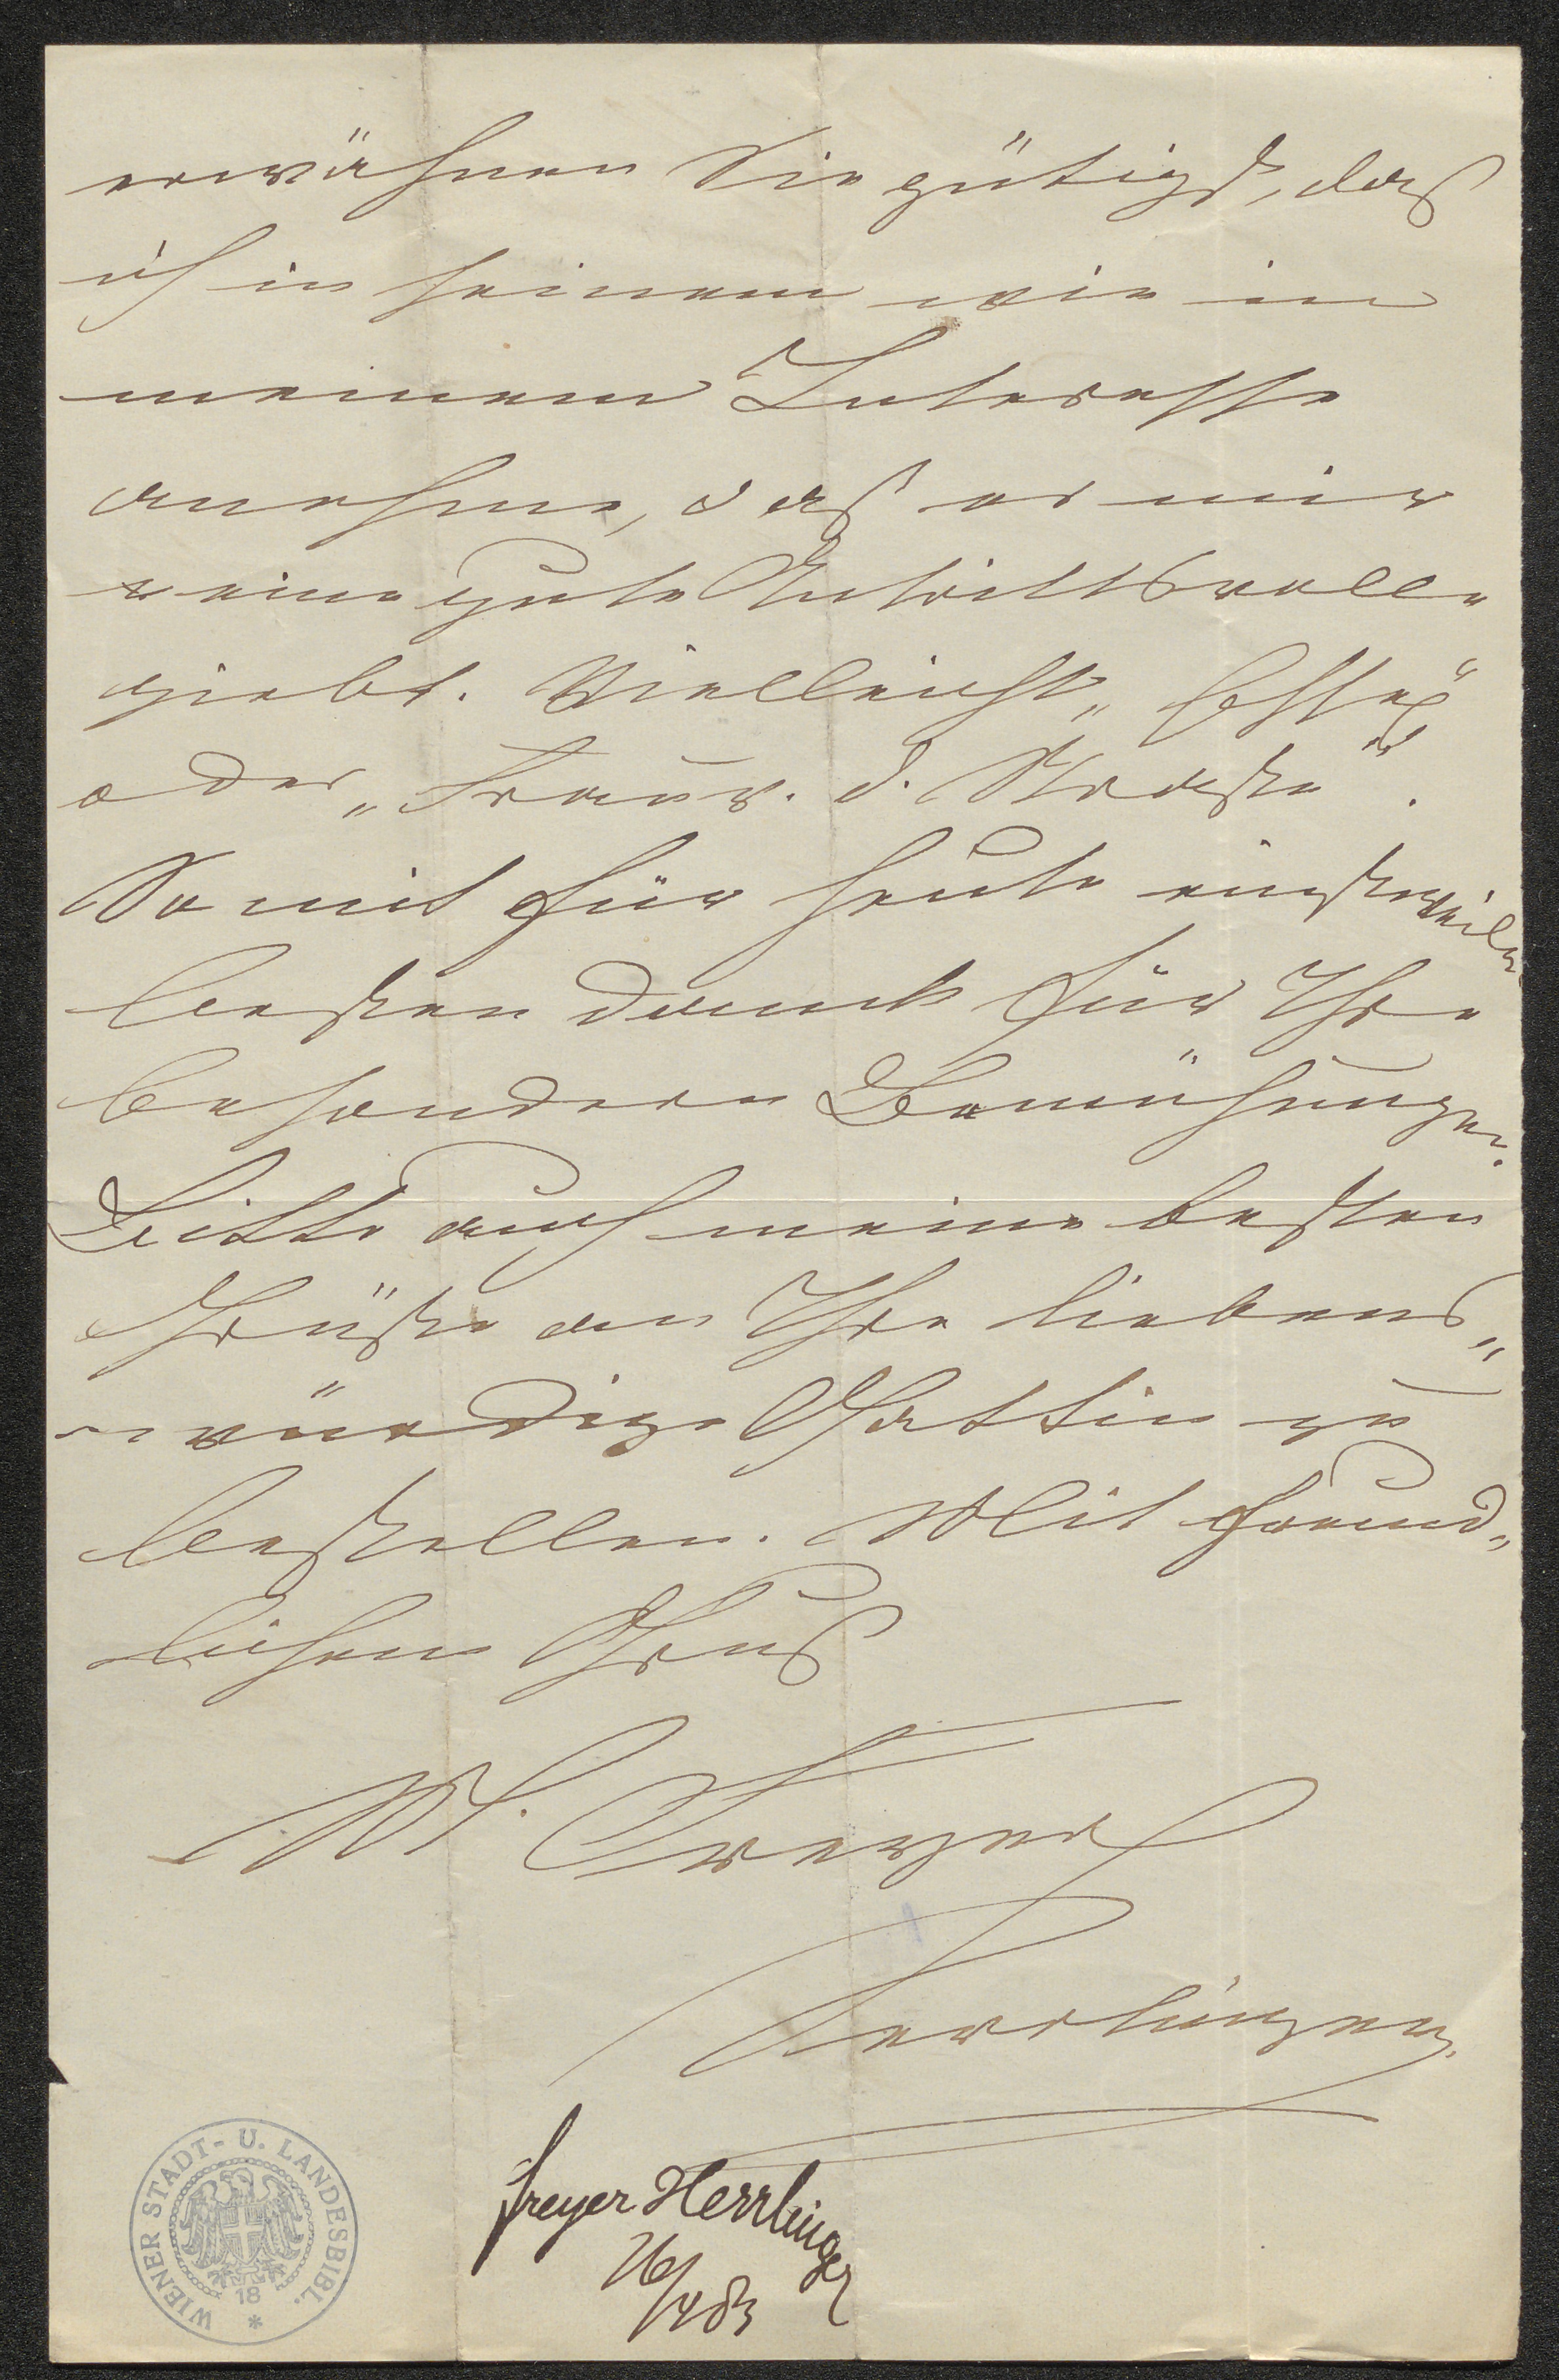 erwähnen Sie gütigst, daß
ich in seinem wie in
meinem Interesse
annehme, daß er mir
eine gute Antrittsrolle
giebt. Vielleicht „Essex“
oder „Frau v. d. Straße“.
So mit für heute einstweilen
besten Dank für Ihre
besondern Bemühungen.
Bitte auch meine besten
Grüße an Ihre liebens„
würdige Gattin zu
bestellen. Mit freund„
lichem Gruß
Freyer
Herrlinger
Freyer Herrlinger
WIENER STADT- U. LANDESBIBL.
18
*